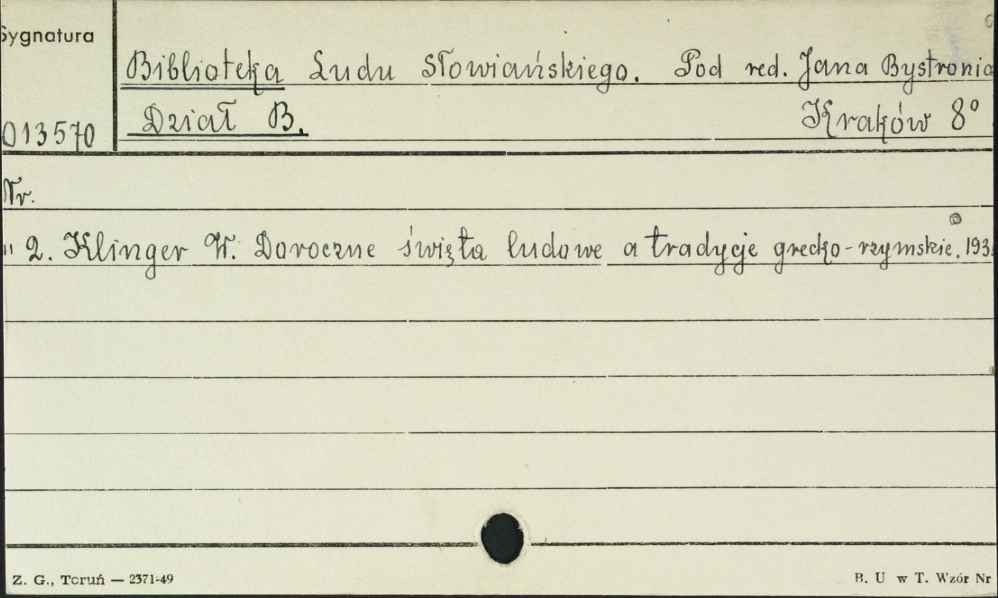 Sygnatura
Biblioteka Ludu Słowiańskiego. Pod red. Jana Bystronia
013570 Dział B. Kraków 8°
Nr.
" 2. Klinger W. Doroczne święta ludowe a tradycje grecko-rzymskie. 193
Z. G., Toruń — 2371-49 B. U w T. Wzór Nr